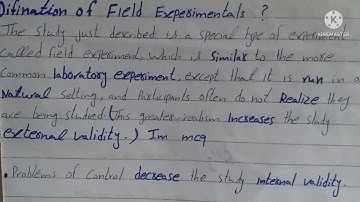 Difination of Field Experimentals ?
The study just described is a special type of experim
Called field experiment, which is Similar to the more
Common laboratory experiment, except that it is run in a
Natural Setting, and Participants often do not Realize they
are being studied. (This greater realism Increases the study
external validity.) Im mcq
• Problems of Control decrease the study internal validity.
KINEMASTER